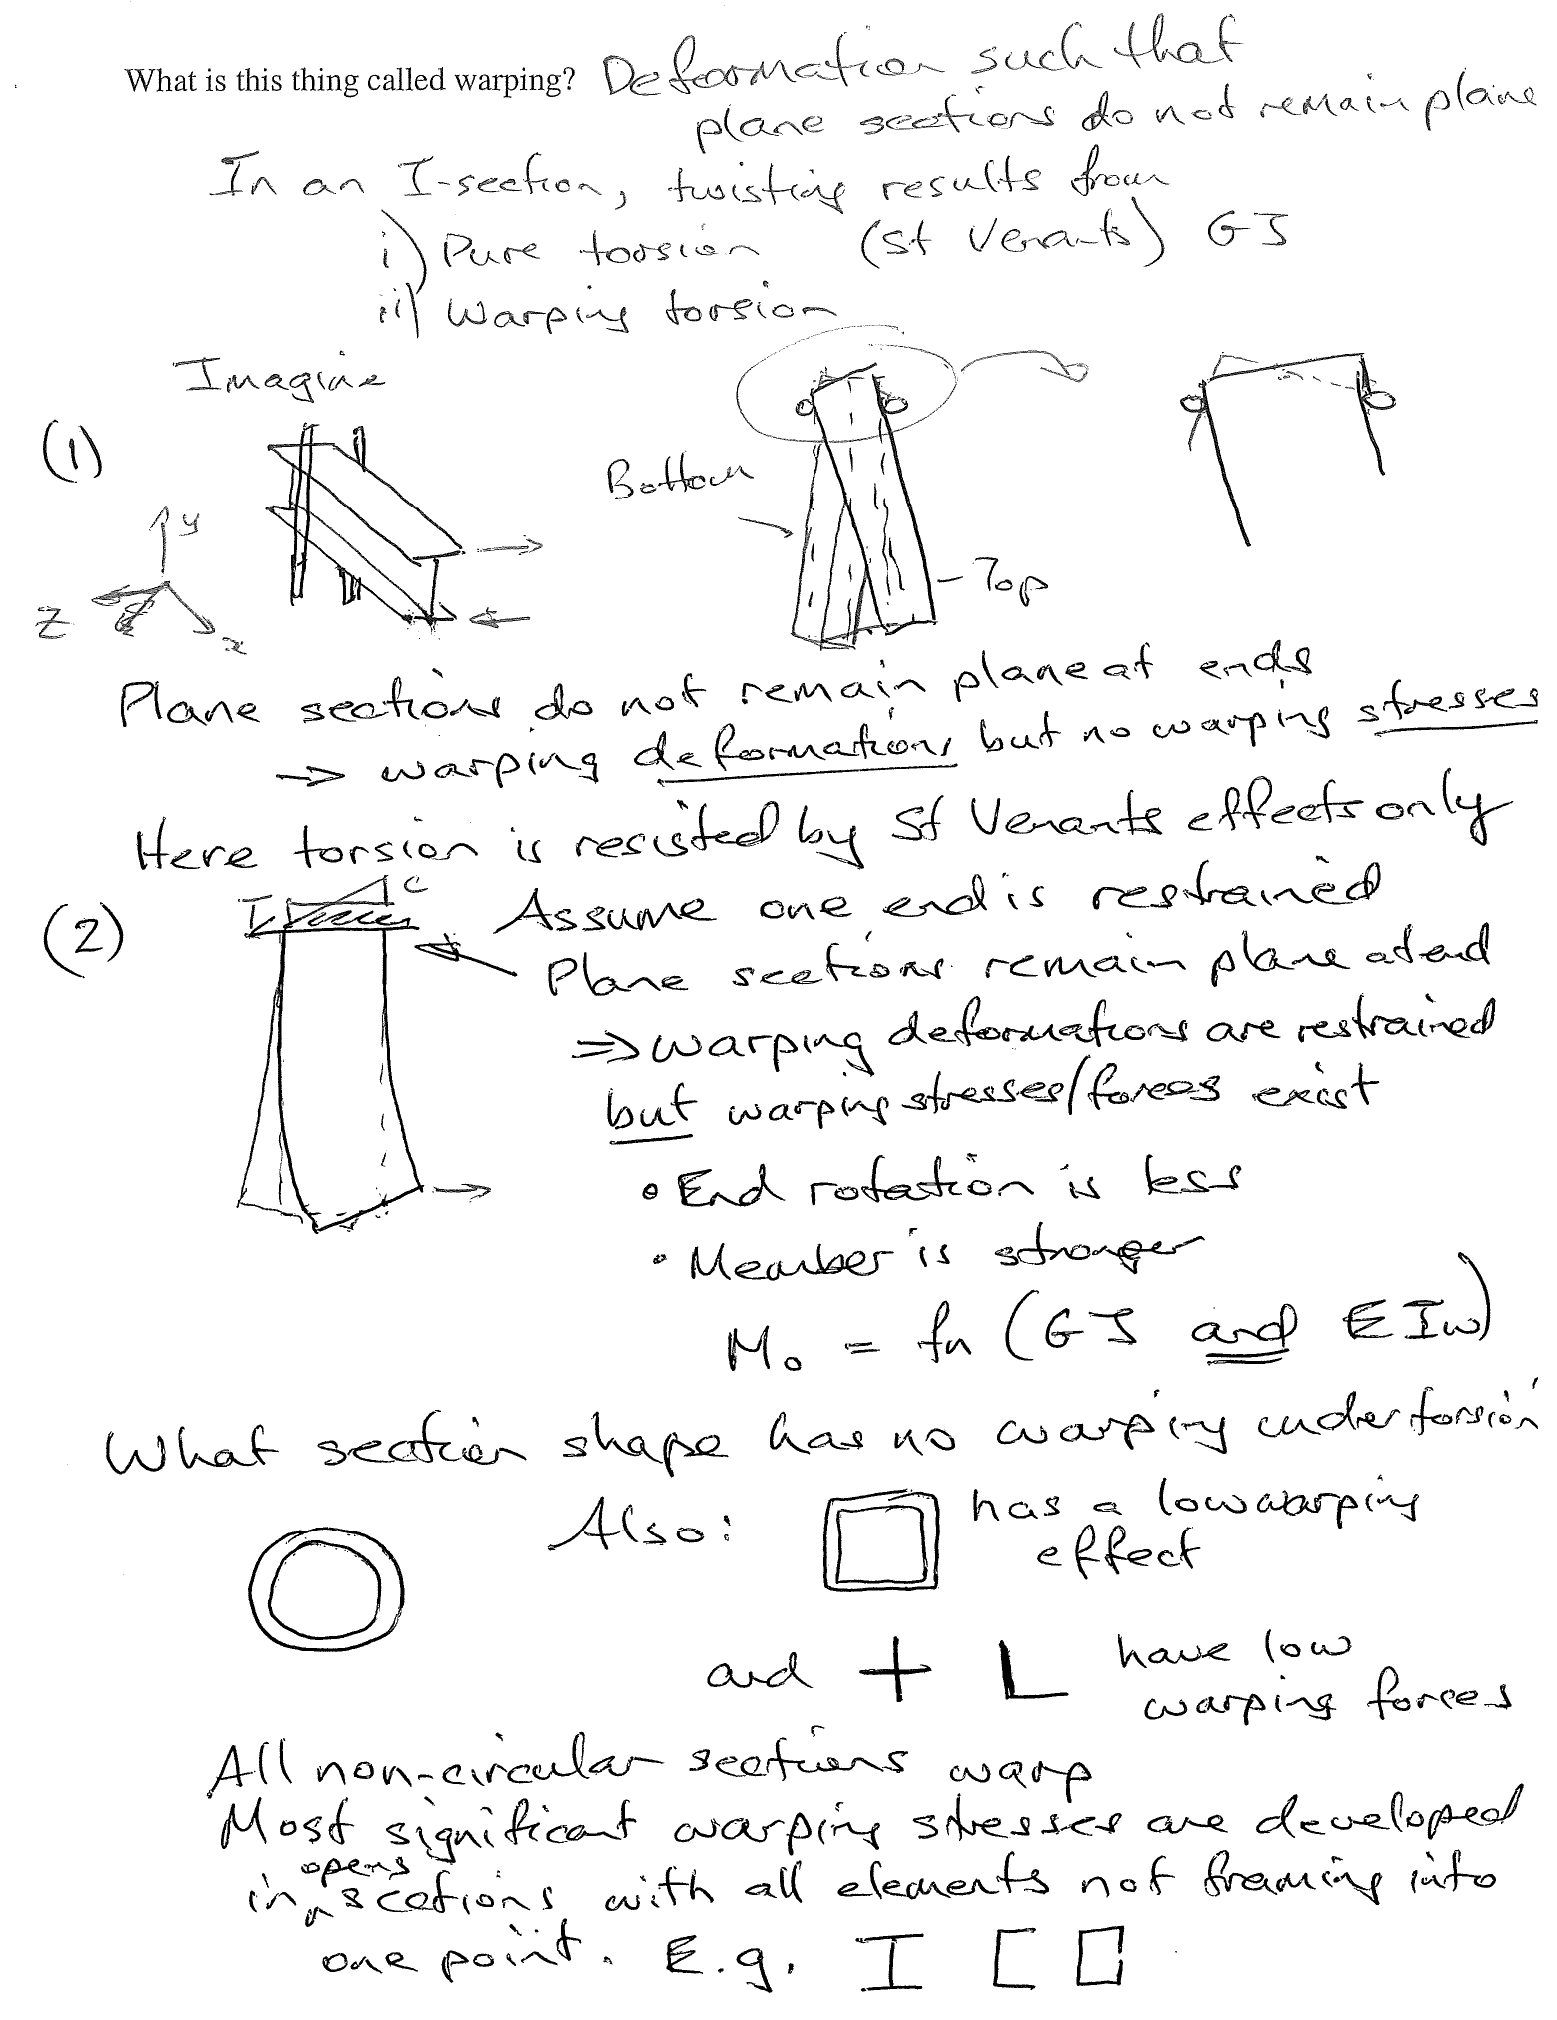 What is this thing called warping? Deformation such that
plane sections do not remain plane
In an I-section, twisting results from
i) Pure torsion (St Venants) GJ
ii) Warping torsion
Imagine
(1)
y
Z
x
Bottom
Top
Plane sections do not remain plane at ends
→ warping deformations but no warping stresses
Here torsion is resisted by St Venants effects only
(2)
T
C
Assume one end is restrained
Plane sections remain plane at end
⇒ warping deformations are restrained
but warping stresses/forces exist
• End rotation is less
• Member is stronger
Mo = fn (GJ and EIw)
What section shape has no warping under torsion
Also: has a low warping
effect
and + L have low
warping forces
All non-circular sections warp
Most significant warping stresses are developed
in opens sections with all elements not framing into
one point. E.g. I [